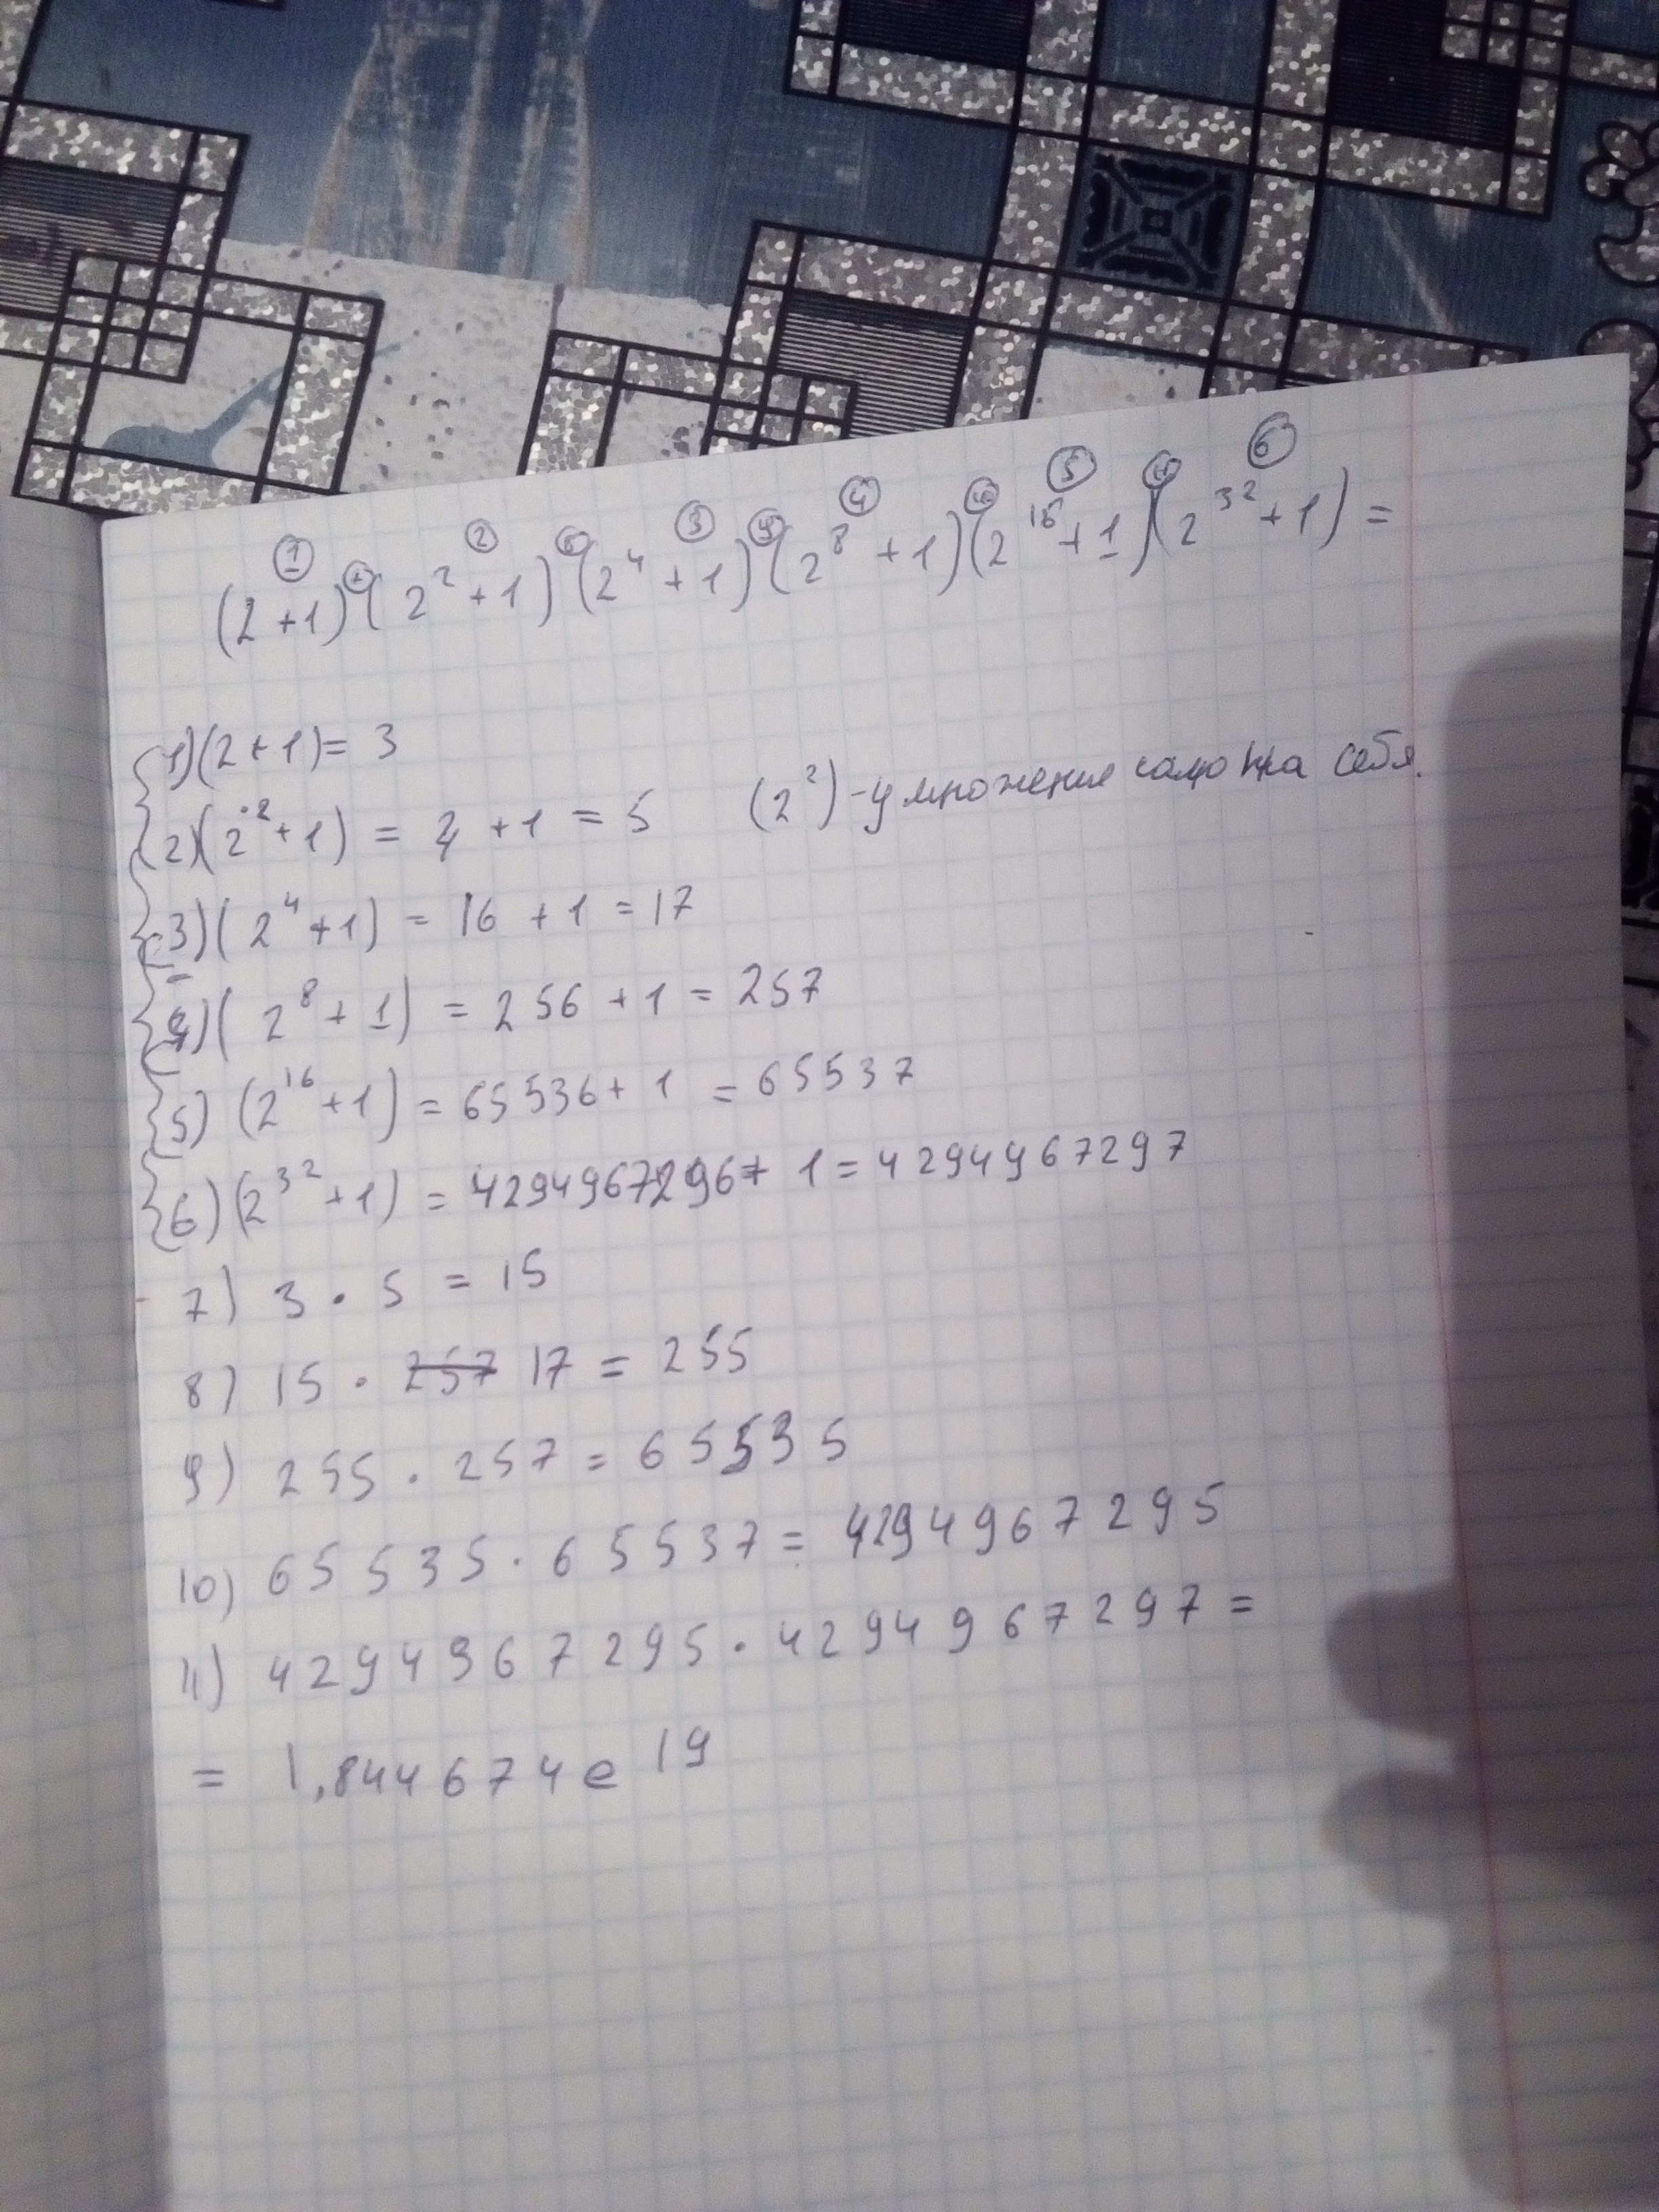 ① ② ③ ④ ⑤ ⑥
(2+1)(2²+1)(2⁴+1)(2⁸+1)(2¹⁶+1)(2³²+1)=
1)(2+1)= 3
2)(2²+1) = 4 +1 = 5 (2²)-умножение само на себя.
3)(2⁴+1) = 16 +1 =17
4)(2⁸+1) = 256 +1 = 257
5) (2¹⁶+1) = 65536+ 1 = 65537
6)(2³²+1) = 4294967296+ 1 = 4294967297
7) 3 · 5 = 15
8) 15 · 257 17 = 255
9) 255 · 257 = 65535
10) 65535 · 65537 = 4294967295
11) 4294967295 · 4294967297 =
= 1,844674e19